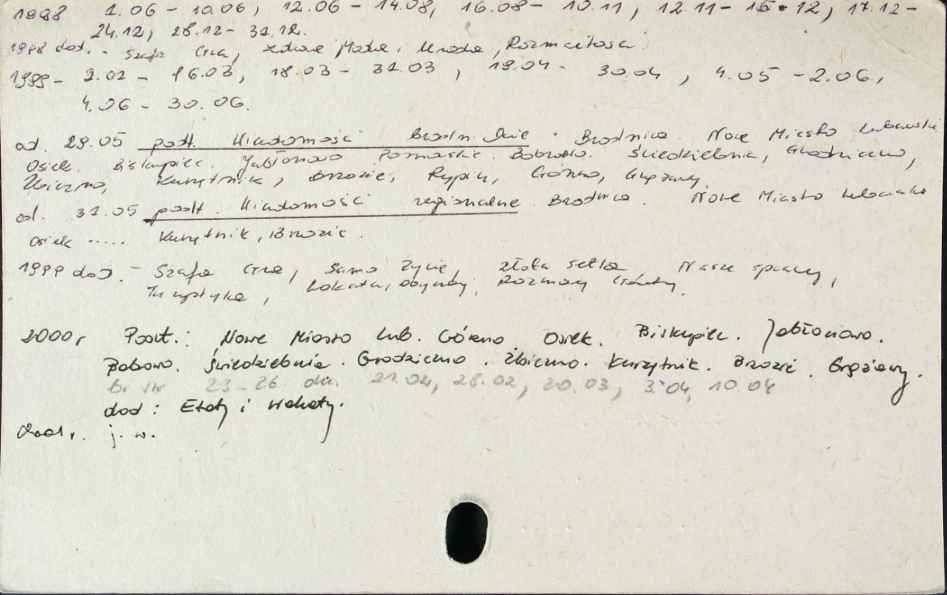 1998 1.06 - 10.06, 12.06 - 14.08, 16.08 - 10.11, 12.11 - 15.12, 17.12 -
24.12, 28.12 - 31.12.
1998 dod. - Szafa Gra, Zdrowe Matka, Uroda, Rozmaitości
1999 - 2.02 - 16.03, 18.03 - 31.03, 19.04 - 30.04, 4.05 - 2.06,
4.06 - 30.06.
od. 29.05 podt. Wiadomości Brodn. Dnie. Brodnica. Nowe Miasto Lubawskie
Osiek. Biskupiec. Jabłonowo Pomorskie. Bobrowo. Świedziebnia, Grodziczno,
Zbiczno, Kurzętnik, Brzozie, Rypin, Górzno, Grążawy
od. 31.05 podt. Wiadomości regionalne Brodnica. Nowe Miasto Lubawskie
Osiek ..... Kurzętnik, Brzozie.
1999 dod. - Szafa Gra, Samo Życie, Złota setka Nasze sprawy,
Turystyka, Lokata, Rozmowy
2000 r Podt.: Nowe Miasto Lub. Górzno. Osiek. Biskupiec. Jabłonowo.
Bobrowo. Świedziebnia. Grodziczno. Zbiczno. Kurzętnik. Brzozie. Grążawy.
Br Nr 23-26 dn. 21.04, 28.02, 20.03, 3.04, 10.04
dod: Etaty i wakaty.
j. w.